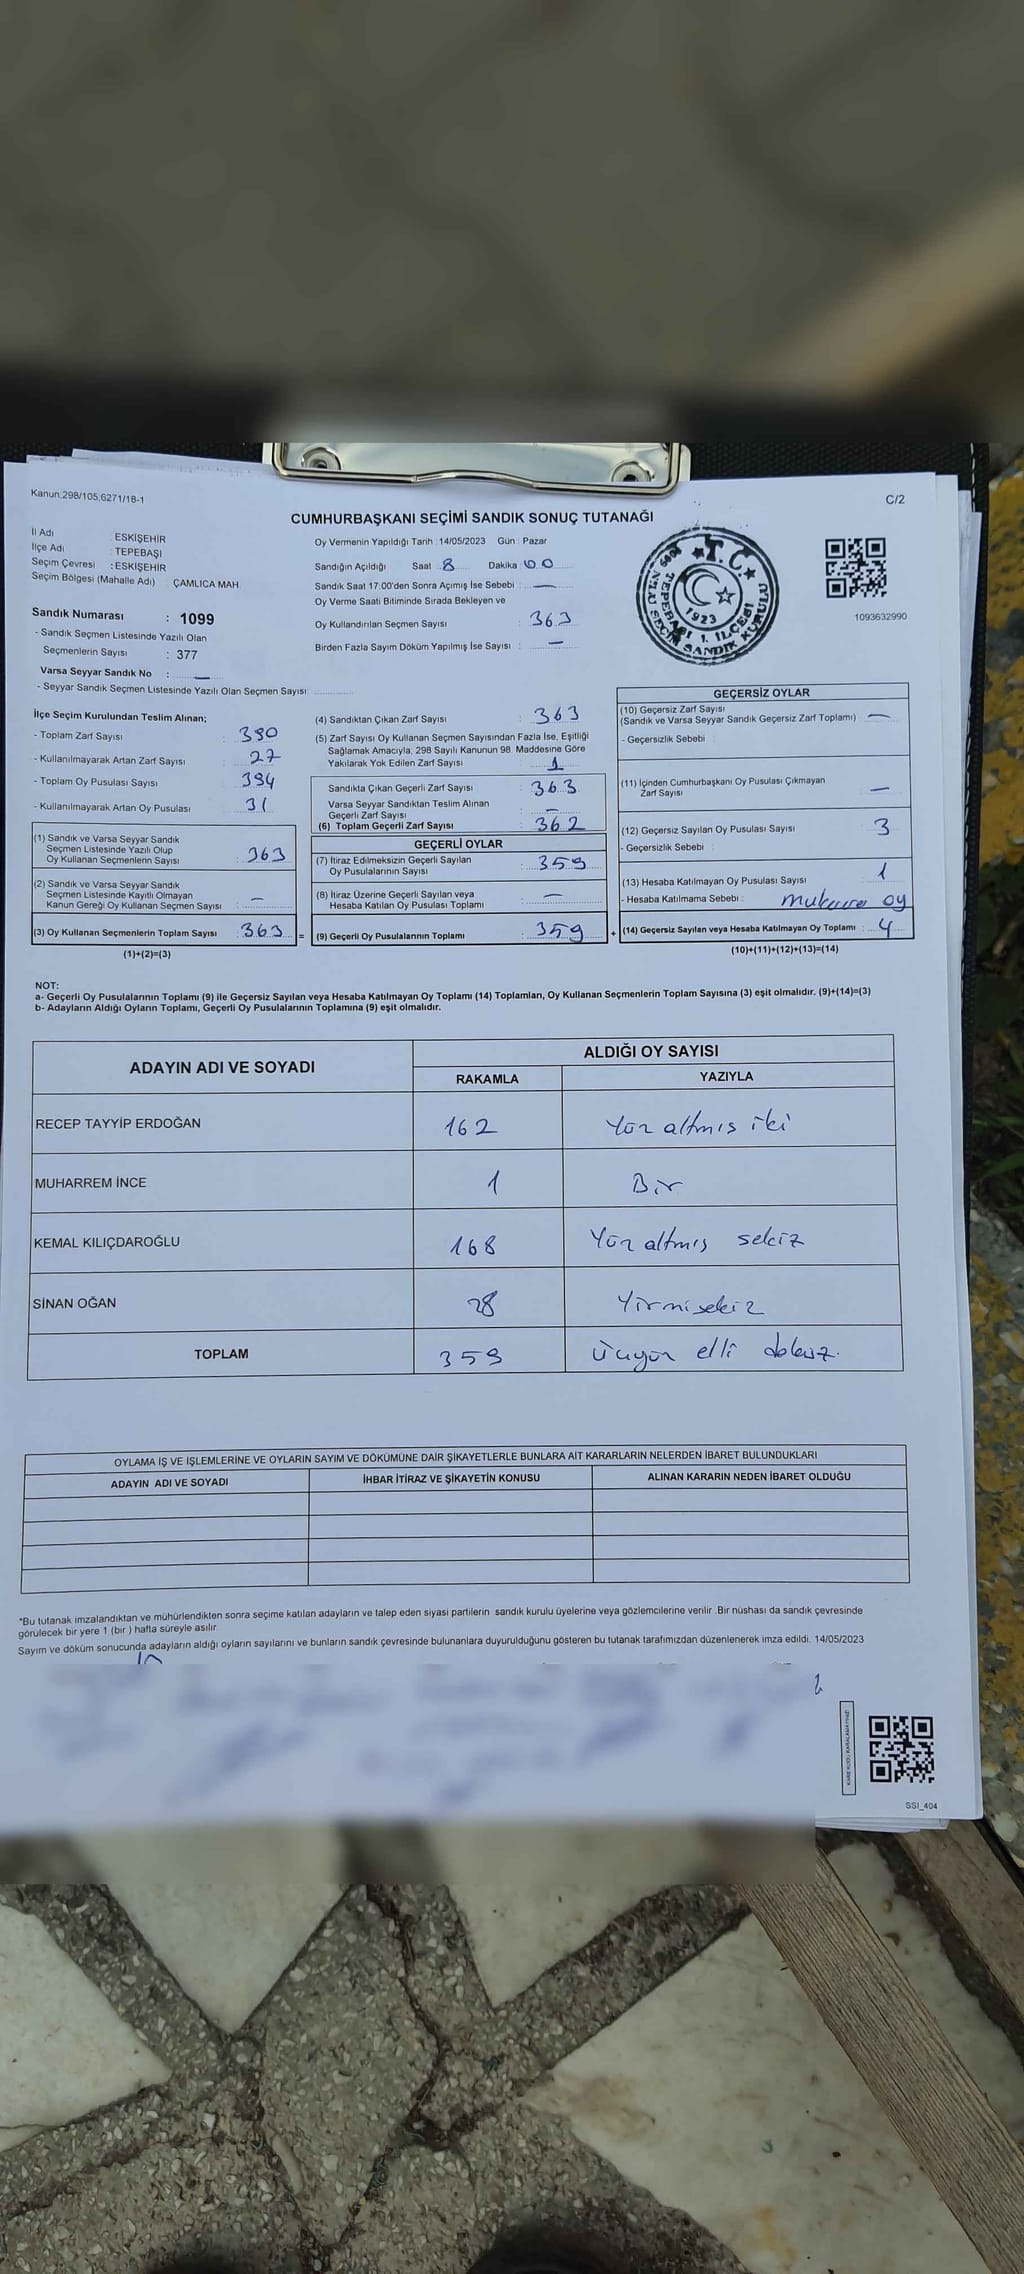 Kanun.298/105,6271/18-1
C/2
CUMHURBAŞKANI SEÇİMİ SANDIK SONUÇ TUTANAĞI
İl Adı : ESKİŞEHİR
İlçe Adı : TEPEBAŞI
Seçim Çevresi : ESKİŞEHİR
Seçim Bölgesi (Mahalle Adı) ÇAMLICA MAH.
Sandık Numarası : 1099
- Sandık Seçmen Listesinde Yazılı Olan
Seçmenlerin Sayısı : 377
Varsa Seyyar Sandık No : —
- Seyyar Sandık Seçmen Listesinde Yazılı Olan Seçmen Sayısı:
Oy Vermenin Yapıldığı Tarih :14/05/2023 Gün : Pazar
Sandığın Açıldığı Saat : 8 Dakika : 00
Sandık Saat 17:00'den Sonra Açımış İse Sebebi : —
Oy Verme Saati Bitiminde Sırada Bekleyen ve
Oy Kullandırılan Seçmen Sayısı : 363
Birden Fazla Sayım Döküm Yapılmış İse Sayısı : —
T.C.
1923
TEPEBAŞI 1. İLÇESİ
1099 NOLU SEÇİM SANDIK KURULU
1093632990
İlçe Seçim Kurulundan Teslim Alınan;
- Toplam Zarf Sayısı : 390
- Kullanılmayarak Artan Zarf Sayısı : 27
- Toplam Oy Pusulası Sayısı : 394
- Kullanılmayarak Artan Oy Pusulası : 31
(1) Sandık ve Varsa Seyyar Sandık
Seçmen Listesinde Yazılı Olup
Oy Kullanan Seçmenlerin Sayısı : 363
(2) Sandık ve Varsa Seyyar Sandık
Seçmen Listesinde Kayıtlı Olmayan
Kanun Gereği Oy Kullanan Seçmen Sayısı : —
(3) Oy Kullanan Seçmenlerin Toplam Sayısı : 363
(1)+(2)=(3)
(4) Sandıktan Çıkan Zarf Sayısı : 363
(5) Zarf Sayısı Oy Kullanan Seçmen Sayısından Fazla İse, Eşitliği
Sağlamak Amacıyla, 298 Sayılı Kanunun 98. Maddesine Göre
Yakılarak Yok Edilen Zarf Sayısı : 1
Sandıkta Çıkan Geçerli Zarf Sayısı : 363
Varsa Seyyar Sandıktan Teslim Alınan
Geçerli Zarf Sayısı : —
(6) Toplam Geçerli Zarf Sayısı : 362
GEÇERLİ OYLAR
(7) İtiraz Edilmeksizin Geçerli Sayılan
Oy Pusulalarının Sayısı : 359
(8) İtiraz Üzerine Geçerli Sayılan veya
Hesaba Katılan Oy Pusulası Toplamı : —
= (9) Geçerli Oy Pusulalarının Toplamı : 359
GEÇERSİZ OYLAR
(10) Geçersiz Zarf Sayısı
(Sandık ve Varsa Seyyar Sandık Geçersiz Zarf Toplamı) : —
- Geçersizlik Sebebi :
(11) İçinden Cumhurbaşkanı Oy Pusulası Çıkmayan
Zarf Sayısı : —
(12) Geçersiz Sayılan Oy Pusulası Sayısı : 3
- Geçersizlik Sebebi :
(13) Hesaba Katılmayan Oy Pusulası Sayısı : 1
- Hesaba Katılmama Sebebi : oy
+ (14) Geçersiz Sayılan veya Hesaba Katılmayan Oy Toplamı : 4
(10)+(11)+(12)+(13)=(14)
NOT:
a- Geçerli Oy Pusulalarının Toplamı (9) ile Geçersiz Sayılan veya Hesaba Katılmayan Oy Toplamı (14) Toplamları, Oy Kullanan Seçmenlerin Toplam Sayısına (3) eşit olmalıdır. (9)+(14)=(3)
b- Adayların Aldığı Oyların Toplamı, Geçerli Oy Pusulalarının Toplamına (9) eşit olmalıdır.
ADAYIN ADI VE SOYADI
ALDIĞI OY SAYISI
RAKAMLA YAZIYLA
RECEP TAYYİP ERDOĞAN 162 Yüz altmış iki
MUHARREM İNCE 1 Bir
KEMAL KILIÇDAROĞLU 168 Yüz altmış sekiz
SİNAN OĞAN 28 Yirmisekiz
TOPLAM 359 Üçyüz elli dokuz.
OYLAMA İŞ VE İŞLEMLERİNE VE OYLARIN SAYIM VE DÖKÜMÜNE DAİR ŞİKAYETLERLE BUNLARA AİT KARARLARIN NELERDEN İBARET BULUNDUKLARI
ADAYIN ADI VE SOYADI İHBAR İTİRAZ VE ŞİKAYETİN KONUSU ALINAN KARARIN NEDEN İBARET OLDUĞU
*Bu tutanak imzalandıktan ve mühürlendikten sonra seçime katılan adayların ve talep eden siyasi partilerin sandık kurulu üyelerine veya gözlemcilerine verilir .Bir nüshası da sandık çevresinde
görülecek bir yere 1 (bir ) hafta süreyle asılır.
Sayım ve döküm sonucunda adayların aldığı oyların sayılarını ve bunların sandık çevresinde bulunanlara duyurulduğunu gösteren bu tutanak tarafımızdan düzenlenerek imza edildi. 14/05/2023
SSI_404